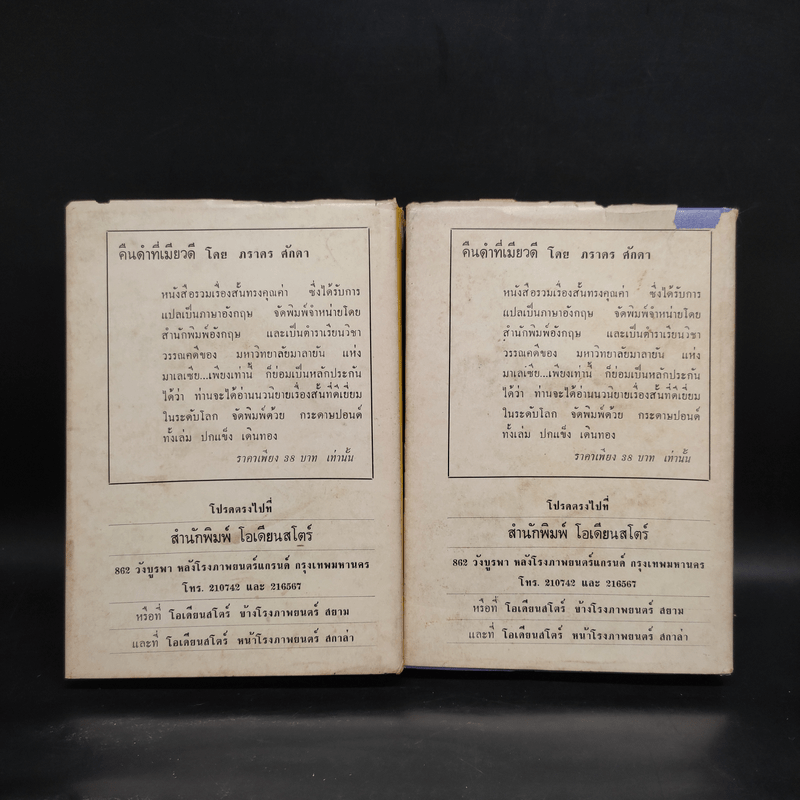 คืนดำที่เมียวดี โดย ภราดร ศักดา
หนังสือรวมเรื่องสั้นทรงคุณค่า ซึ่งได้รับการ
แปลเป็นภาษาอังกฤษ จัดพิมพ์จำหน่ายโดย
สำนักพิมพ์อังกฤษ และเป็นตำราเรียนวิชา
วรรณคดีของ มหาวิทยาลัยมาลายัน แห่ง
มาเลเซีย...เพียงเท่านี้ ก็ย่อมเป็นหลักประกัน
ได้ว่า ท่านจะได้อ่านนวนิยายเรื่องสั้นที่ดีเยี่ยม
ในระดับโลก จัดพิมพ์ด้วย กระดาษปอนด์
ทั้งเล่ม ปกแข็ง เดินทอง
ราคาเพียง 38 บาท เท่านั้น
โปรดตรงไปที่
สำนักพิมพ์ โอเดียนสโตร์
862 วังบูรพา หลังโรงภาพยนตร์แกรนด์ กรุงเทพมหานคร
โทร. 210742 และ 216567
หรือที่ โอเดียนสโตร์ ข้างโรงภาพยนตร์ สยาม
และที่ โอเดียนสโตร์ หน้าโรงภาพยนตร์ สกาล่า
คืนดำที่เมียวดี โดย ภราดร ศักดา
หนังสือรวมเรื่องสั้นทรงคุณค่า ซึ่งได้รับการ
แปลเป็นภาษาอังกฤษ จัดพิมพ์จำหน่ายโดย
สำนักพิมพ์อังกฤษ และเป็นตำราเรียนวิชา
วรรณคดีของ มหาวิทยาลัยมาลายัน แห่ง
มาเลเซีย...เพียงเท่านี้ ก็ย่อมเป็นหลักประกัน
ได้ว่า ท่านจะได้อ่านนวนิยายเรื่องสั้นที่ดีเยี่ยม
ในระดับโลก จัดพิมพ์ด้วย กระดาษปอนด์
ทั้งเล่ม ปกแข็ง เดินทอง
ราคาเพียง 38 บาท เท่านั้น
โปรดตรงไปที่
สำนักพิมพ์ โอเดียนสโตร์
862 วังบูรพา หลังโรงภาพยนตร์แกรนด์ กรุงเทพมหานคร
โทร. 210742 และ 216567
หรือที่ โอเดียนสโตร์ ข้างโรงภาพยนตร์ สยาม
และที่ โอเดียนสโตร์ หน้าโรงภาพยนตร์ สกาล่า